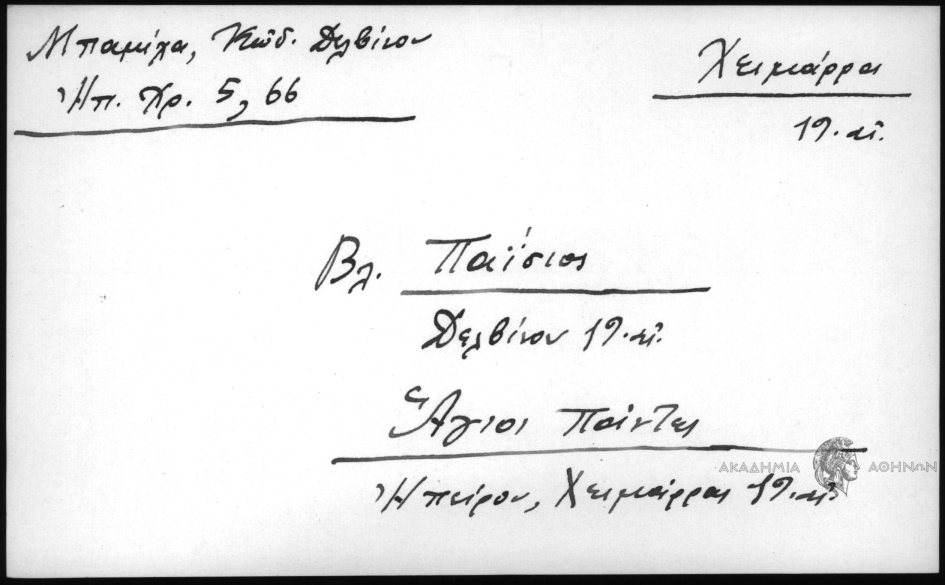 Μπαμίχα, Κώδ. Δελβίνου
Ἠπ. Χρ. 5, 66
Χειμάρρα
19. αἰ.
Βλ. Παΐσιος
Δελβίνου 19. αἰ.
Ἅγιοι Πάντες
Ἠπείρου, Χειμάρρας 19. αἰ.
ΑΚΑΔΗΜΙΑ ΑΘΗΝΩΝ